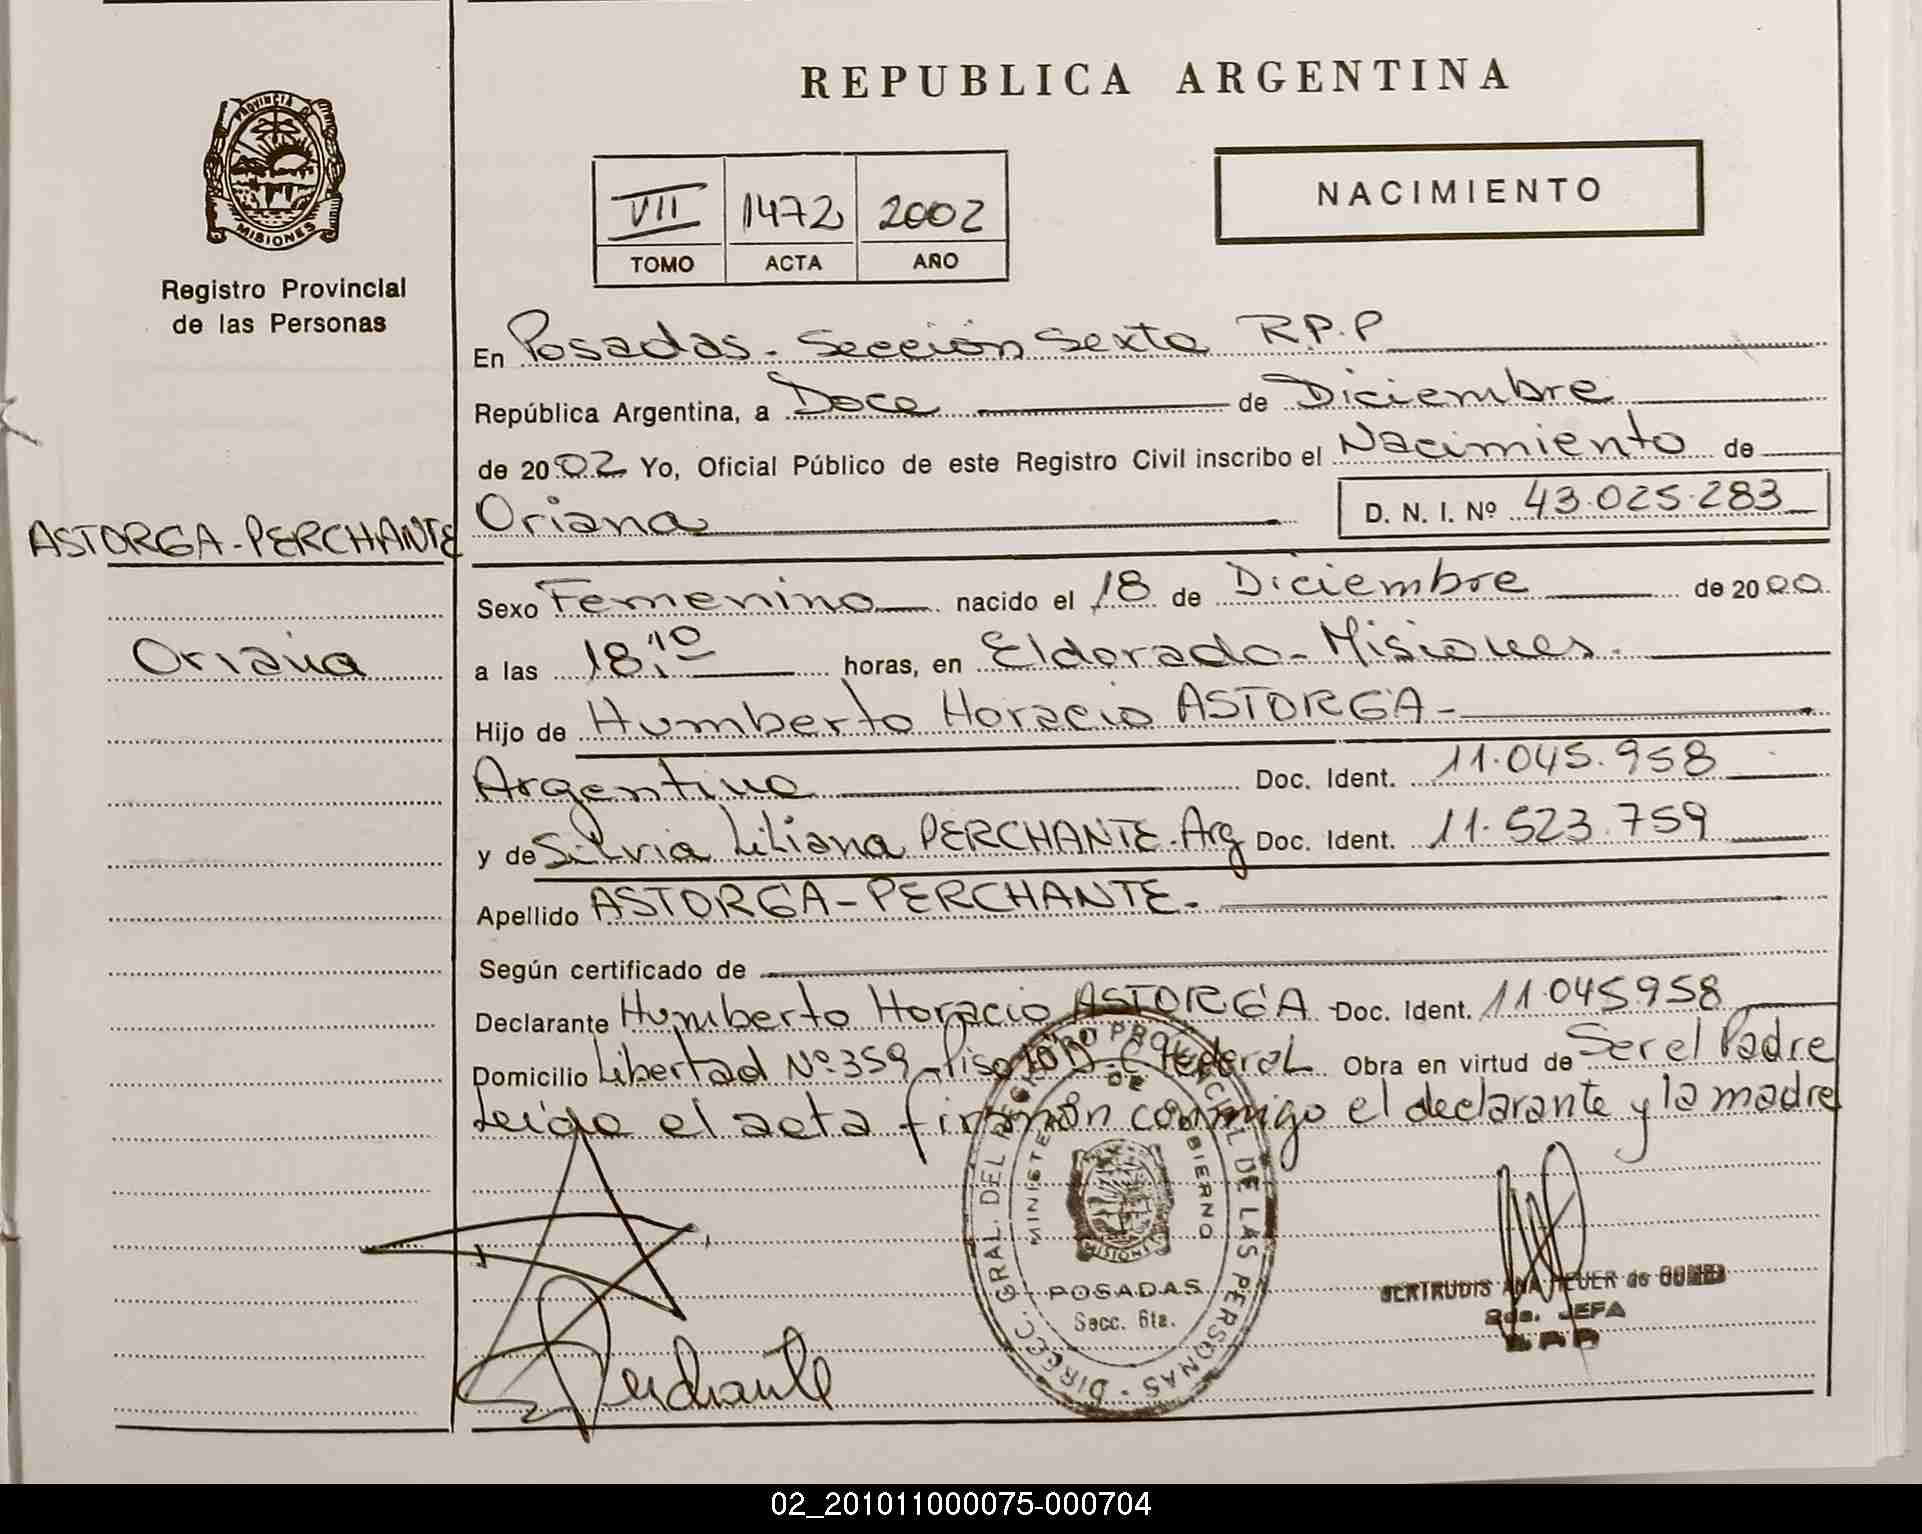 REPUBLICA ARGENTINA
PROVINCIA DE
MISIONES
Registro Provincial
de las Personas
VII 1472 2002
TOMO ACTA AÑO
NACIMIENTO
En Posadas - Sección Sexta R.P.P
República Argentina, a Doce de Diciembre
de 2002 Yo, Oficial Público de este Registro Civil inscribo el Nacimiento de
Oriana D. N. I. Nº 43.025.283
ASTORGA-PERCHANTE
Oriana
Sexo Femenino nacido el 18 de Diciembre de 2000
a las 18,10 horas, en Eldorado - Misiones.
Hijo de Humberto Horacio ASTORGA -
Argentino Doc. Ident. 11.045.958
y de Silvia Liliana PERCHANTE. Arg Doc. Ident. 11.523.759
Apellido ASTORGA-PERCHANTE.
Según certificado de
Declarante Humberto Horacio ASTORGA - Doc. Ident. 11.045958
Domicilio Libertad Nº 359 - Piso 10 Federal Obra en virtud de Ser el Padre
Leída el acta firman conmigo el declarante y la madre
DIRECC. GRAL. DEL REGISTRO PROVINCIAL DE LAS PERSONAS
MINISTERIO DE GOBIERNO
MISIONES
POSADAS
Secc. 6ta.
GERTRUDIS ANA de
2da. JEFA
Perchante
02_201011000075-000704